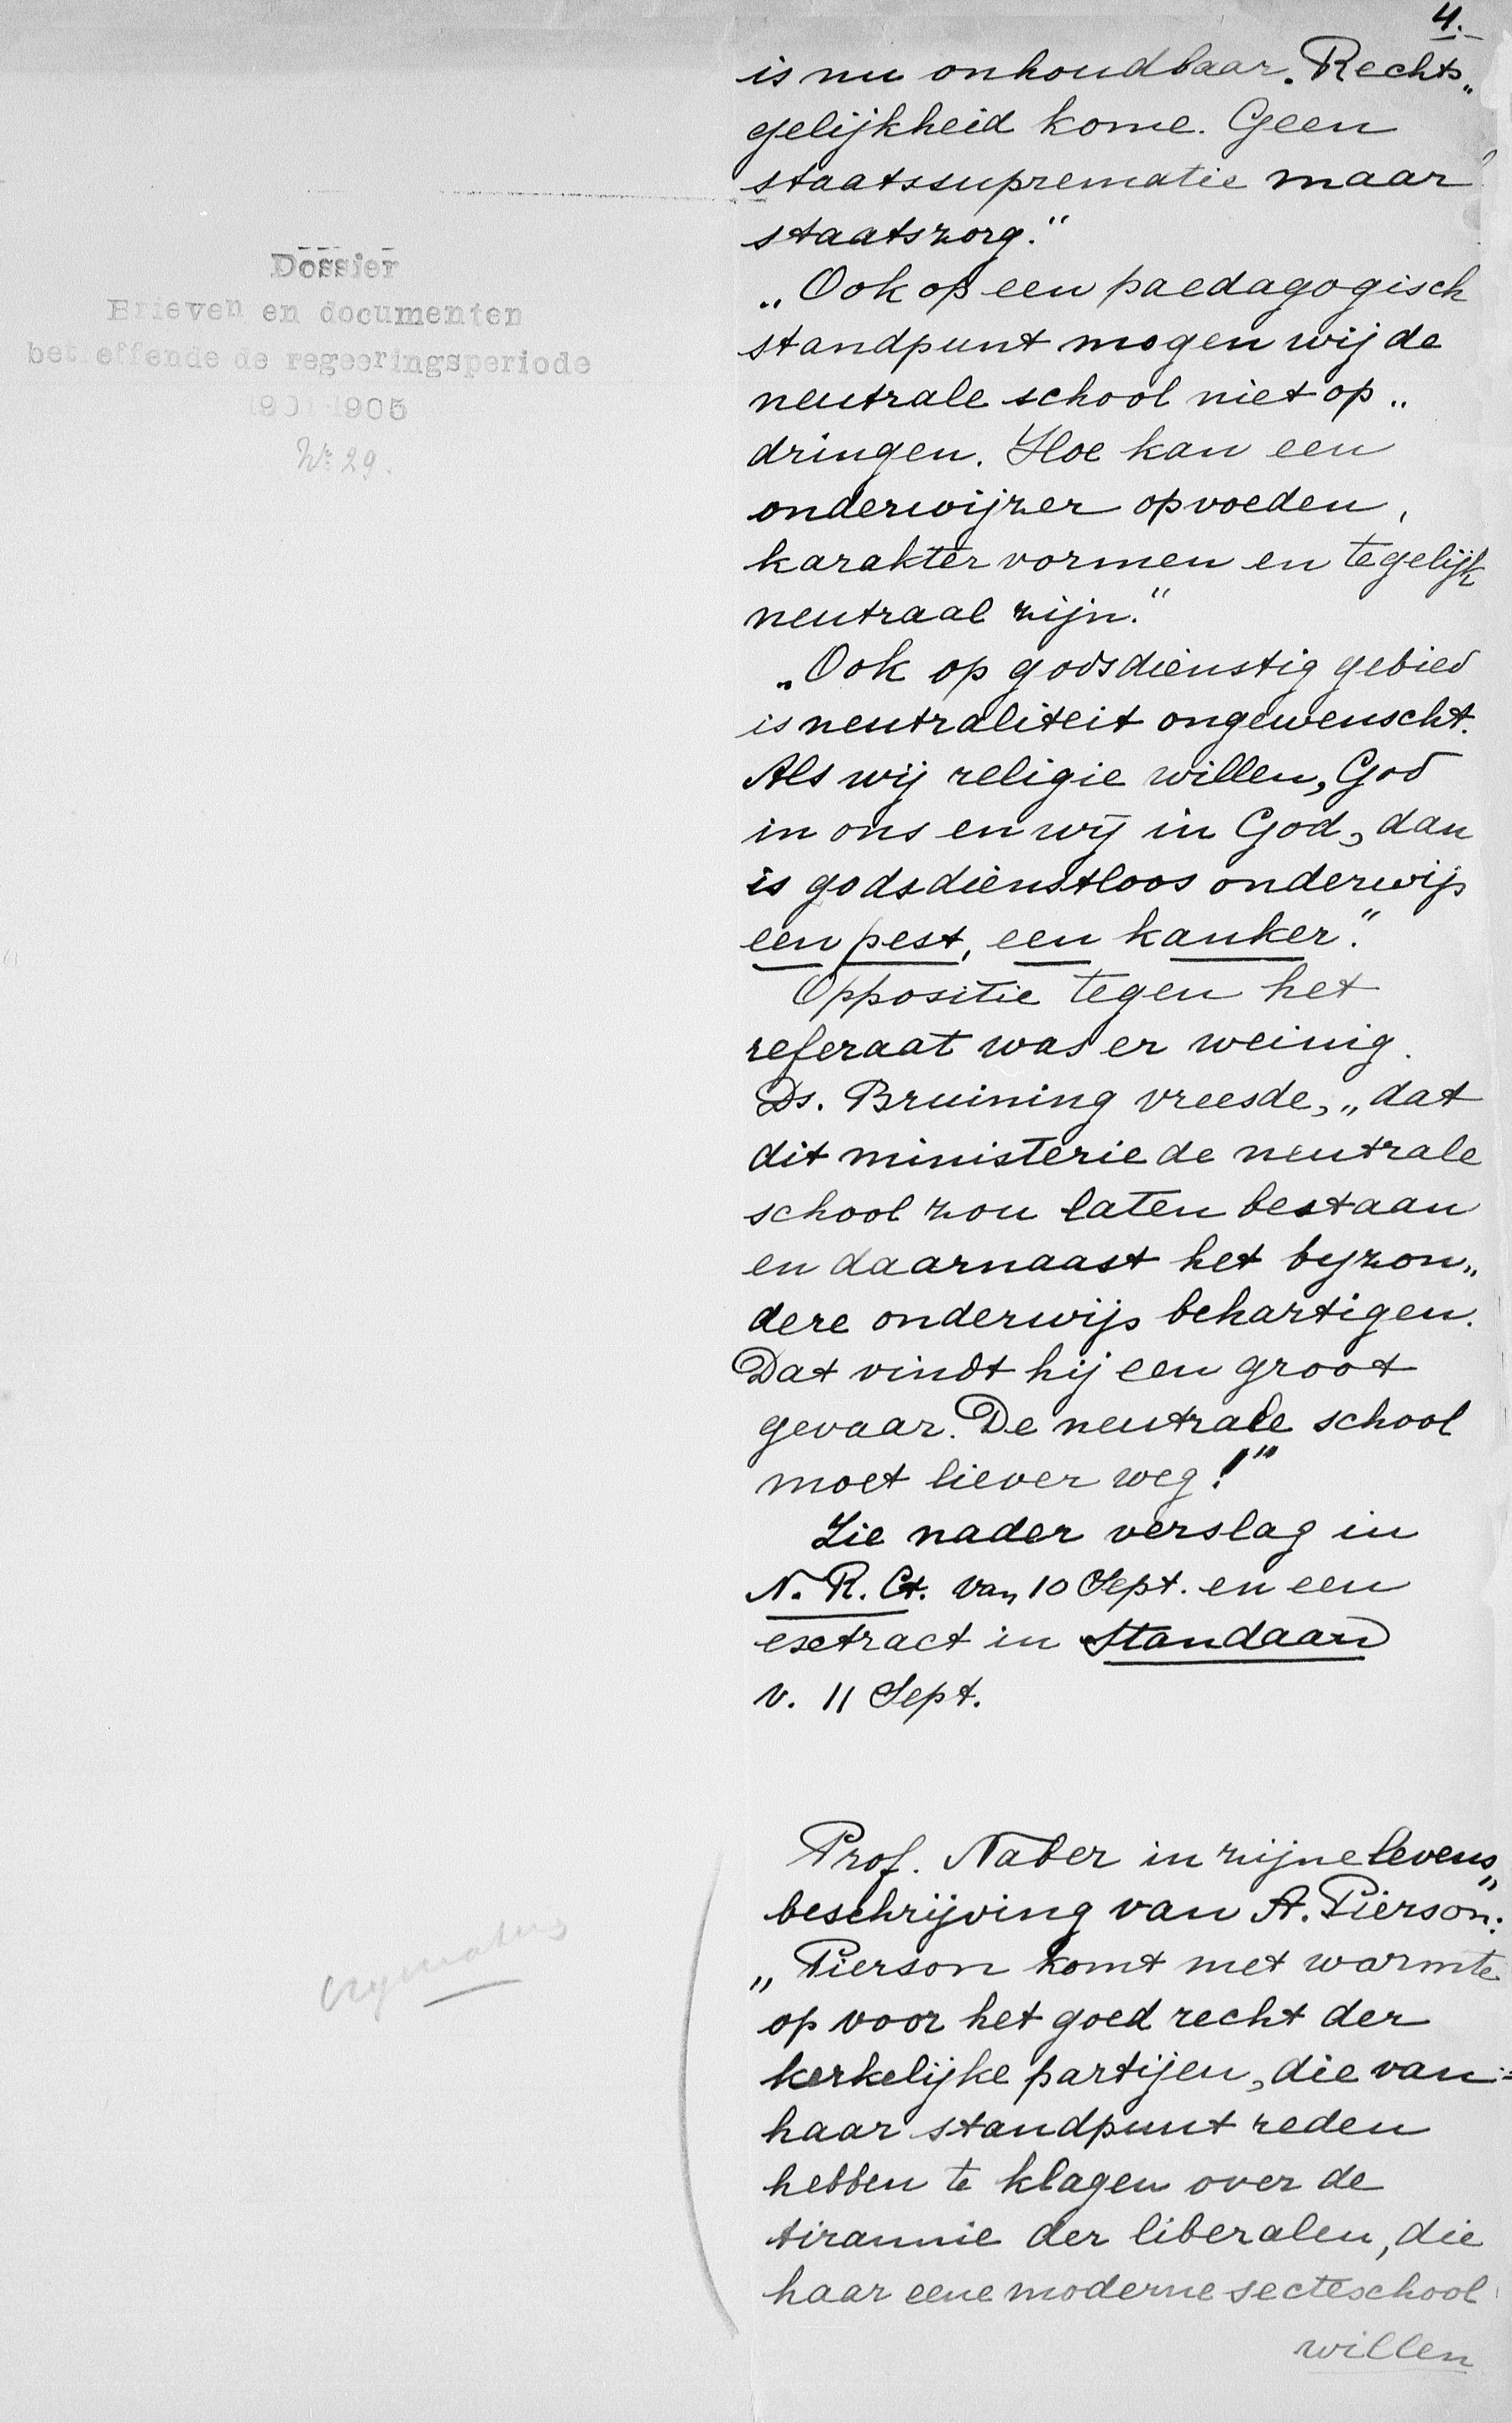 4.
is nu onhoudbaar. Rechts„
gelijkheid kome. Geen
staatssuprematie maar
staatszorg."
„Ook op een paedagogisch
standpunt mogen wij de
neutrale school niet op„
dringen. Hoe kan een
onderwijzer opvoeden,
karakter vormen en tegelijk
neutraal zijn."
„Ook op godsdienstig gebied
is neutraliteit ongewenscht.
Als wij religie willen, God
in ons en wij in God, dan
is godsdienstloos onderwijs
een pest, een kanker."
Oppositie tegen het
referaat was er weinig.
Ds. Bruining vreesde, „dat
dit ministerie de neutrale
school zou laten bestaan
en daarnaast het byzon„
dere onderwijs behartigen.
Dat vindt hij een groot
gevaar. De neutrale school
moet liever weg!"
Zie nader verslag in
N. R. Ct. van 10 Sept. en een
extract in Standaard
v. 11 Sept.
Prof. Naber in zijne levens„
beschrijving van A. Pierson:
„Pierson komt met warmte
op voor het goed recht der
kerkelijke partijen, die van
haar standpunt reden
hebben te klagen over de
tirannie der liberalen, die
haar eene moderne secteschool
willen
Dossier
Brieven en documenten
betreffende de regeeringsperiode
1901-1905
No 29.